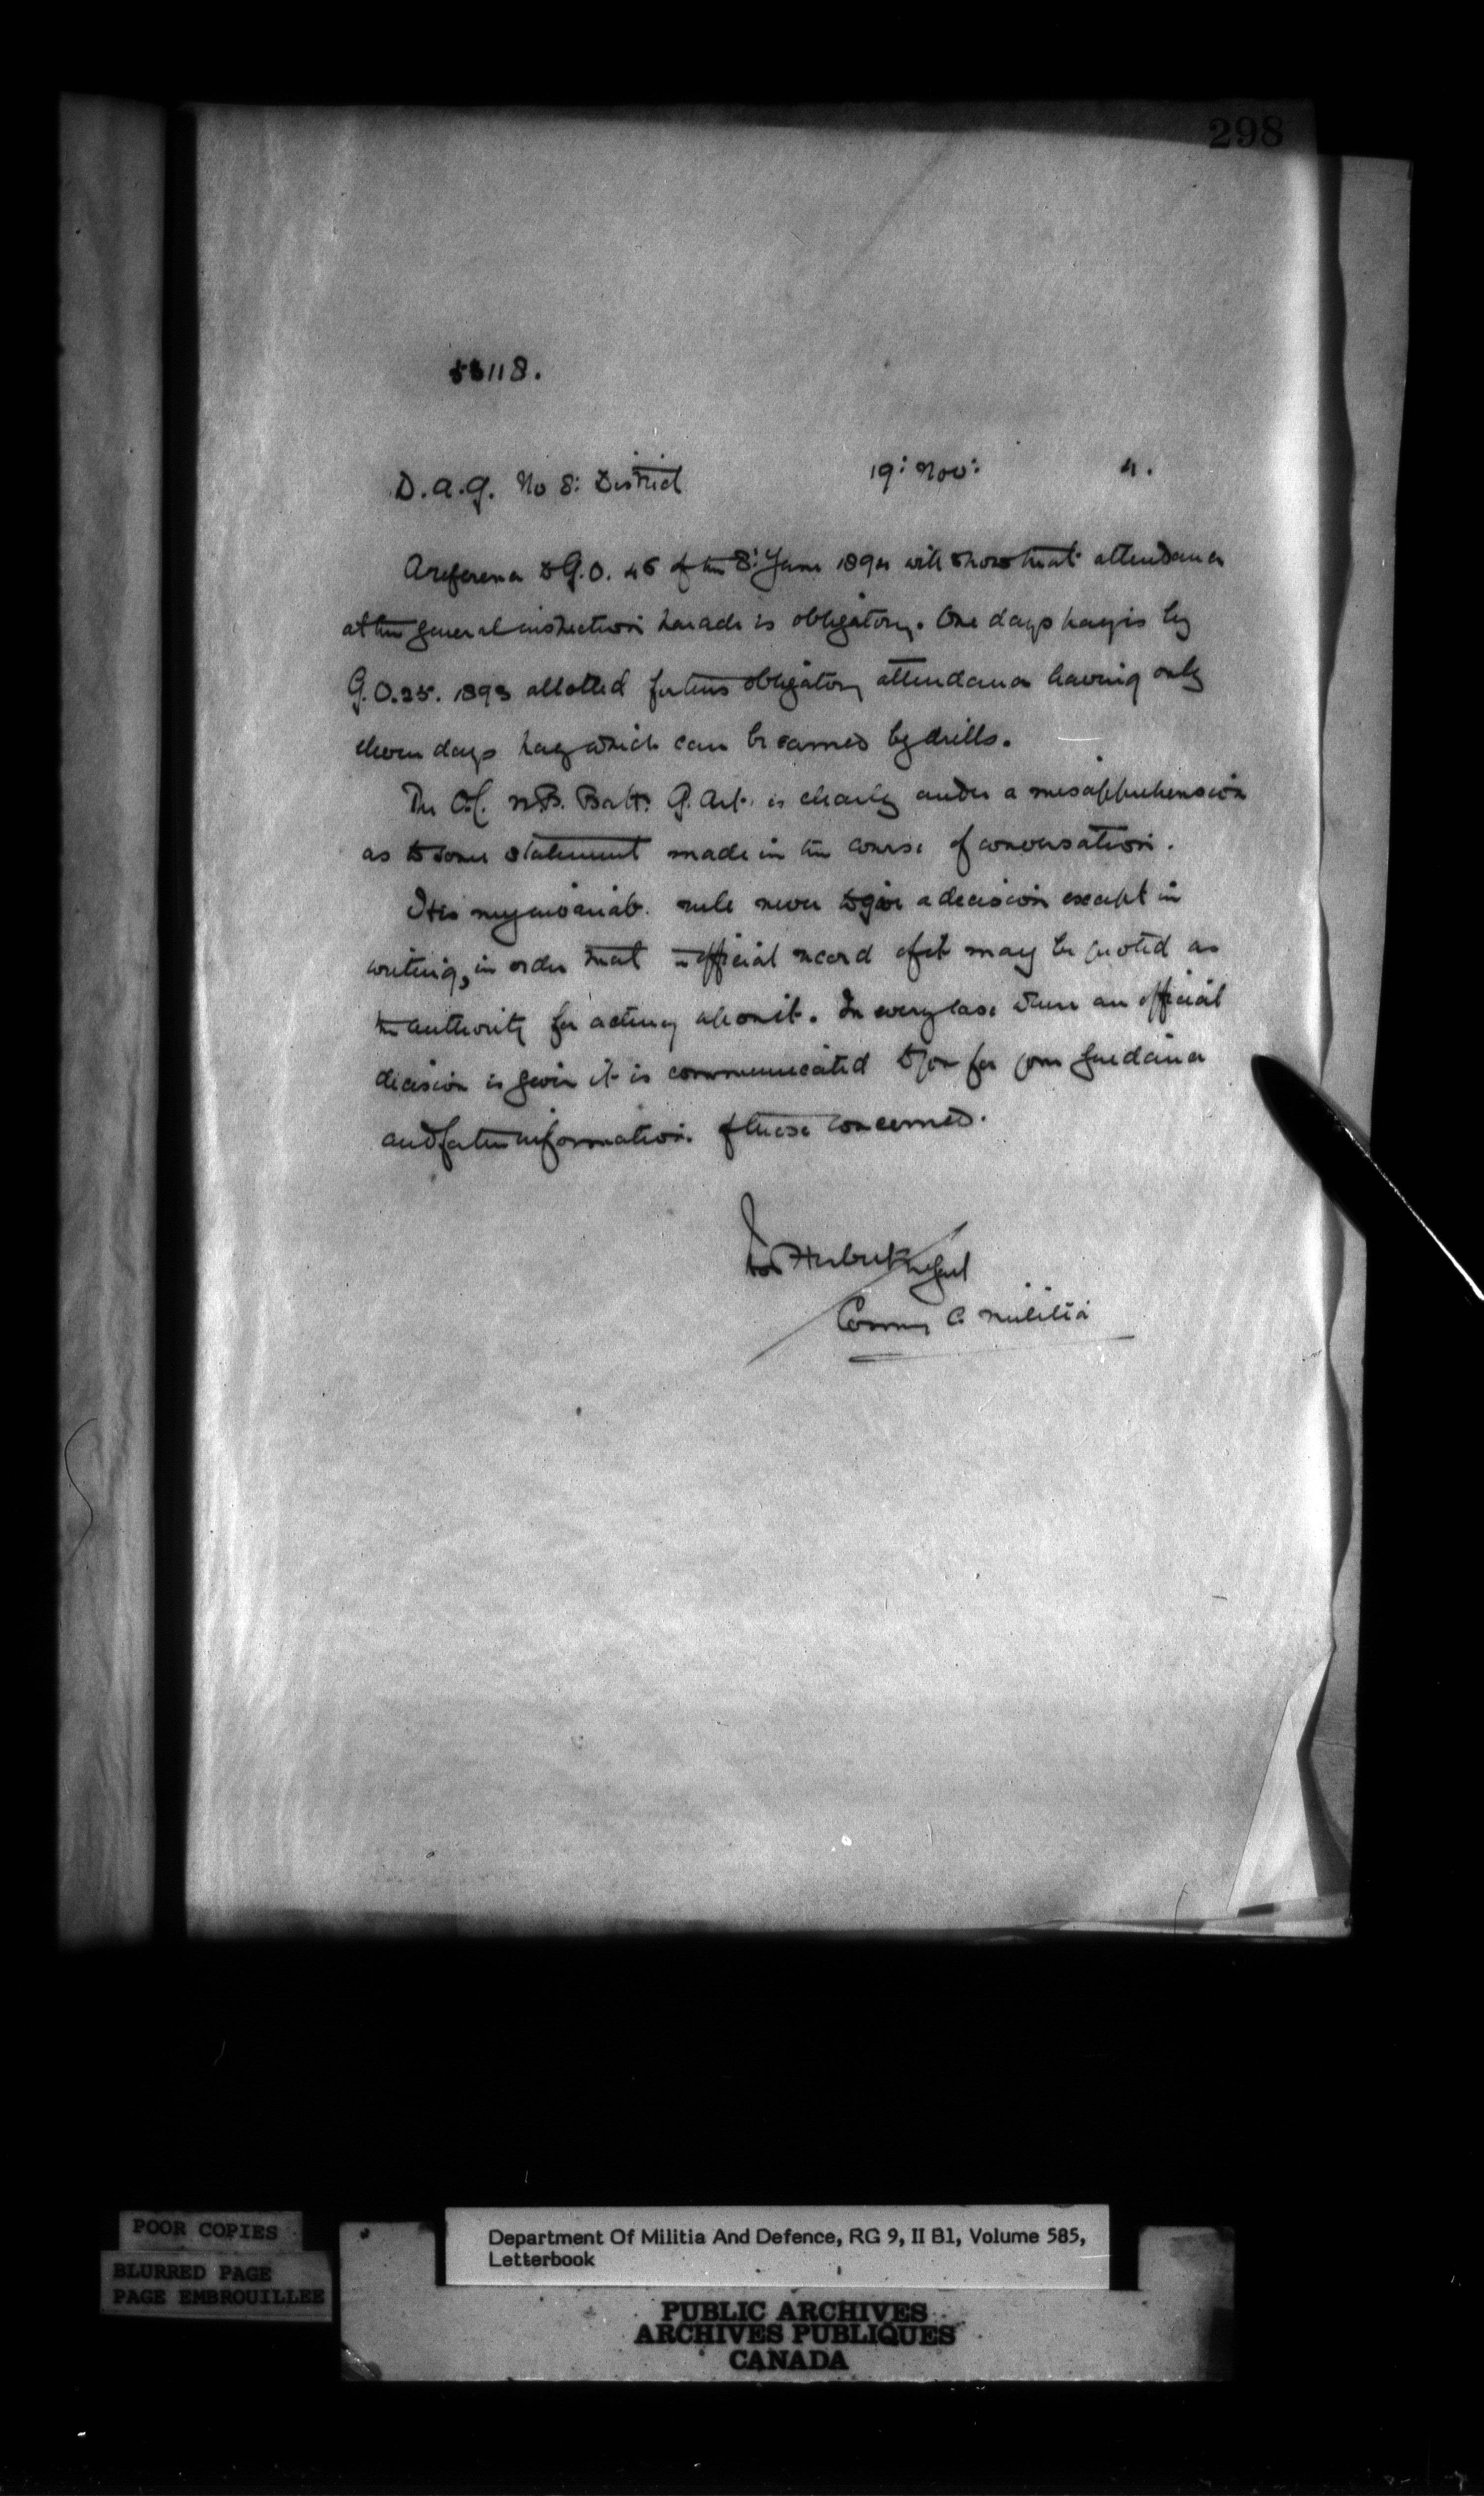 298
53118.
D.A.G. No 8: District 19: Nov: 4.
A reference to G.O. 46 of the 8: June 1894 will show that attendance
at the general inspection parade is obligatory. One days pay is by
G.O. 25. 1893 allotted for this obligatory attendance leaving only
eleven days pay which can be earned by drills.
The O.C. N.B. Batt: G. Art. is clearly under a misapprehension
as to some statement made in the course of conversation.
It is my invariab. rule never to give a decision except in
writing, in order that official record of it may be quoted as
the authority for acting upon it. In every case where an official
decision is given it is communicated to you for your guidance
and for the information of those concerned.
Herbert M Genl
Commg C. Militia
POOR COPIES
BLURRED PAGE
PAGE EMBROUILLEE
Department Of Militia And Defence, RG 9, II B1, Volume 585,
Letterbook
PUBLIC ARCHIVES
ARCHIVES PUBLIQUES
CANADA